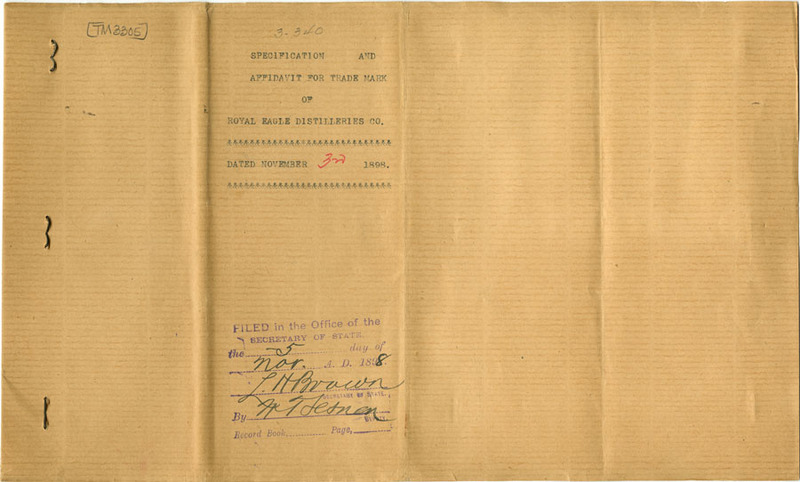 [TM3305]
3-340
SPECIFICATION AND
AFFIDAVIT FOR TRADE MARK
OF
ROYAL EAGLE DISTILLERIES CO.
DATED NOVEMBER 3rd 1898.
FILED in the Office of the
SECRETARY OF STATE
the 5 day of
Nov. A. D. 1898.
L H Brown
SECRETARY OF STATE,
By
Record Book, Page,